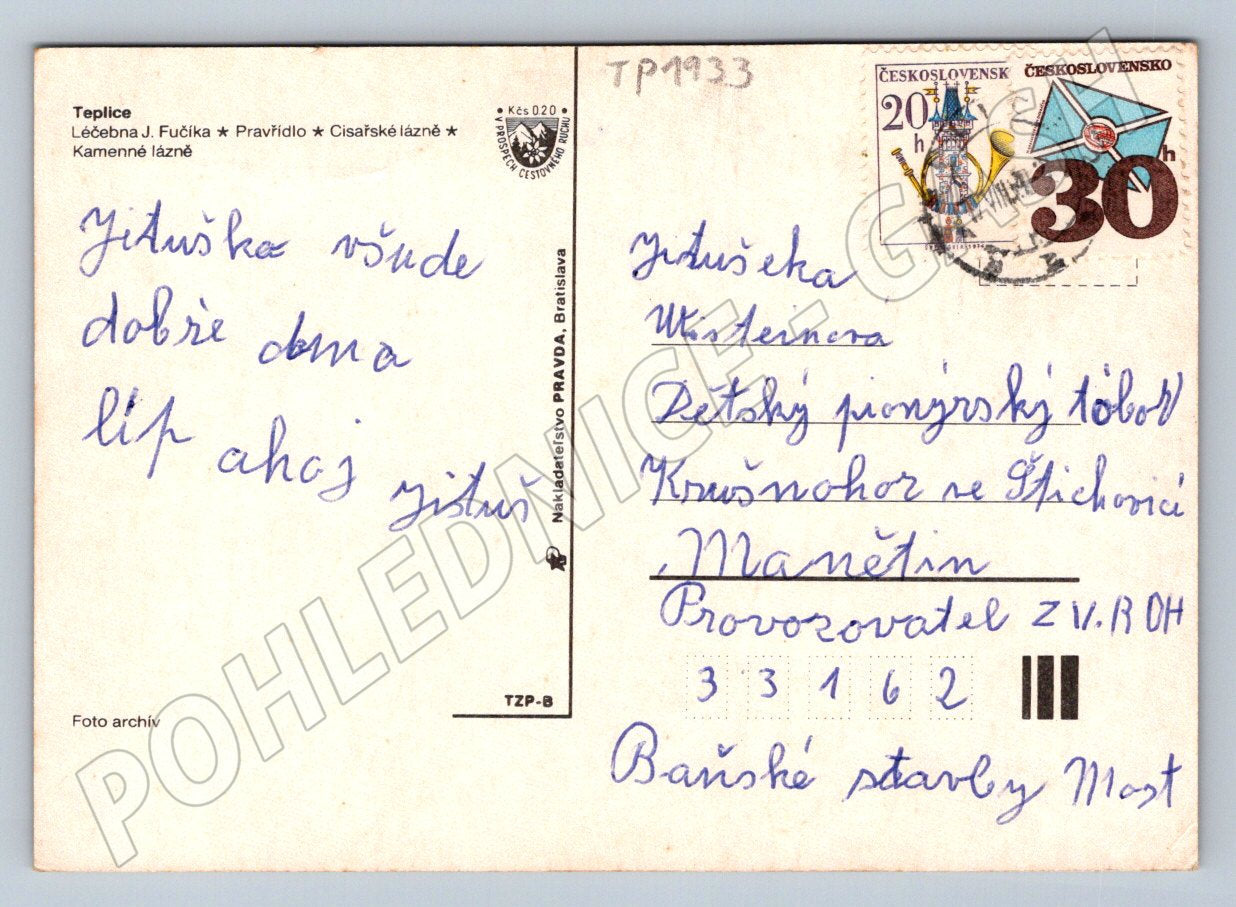 TP1933
Teplice
Léčebna J. Fučíka ★ Pravřídlo ★ Cisařské lázně ★
Kamenné lázně
• Kčs 0.20 •
V PROSPECH CESTOVNÉHO RUCHU
ČESKOSLOVENSK
20
h
ČESKOSLOVENSKO
30
h
Jituška všude
dobře doma
líp ahoj
Jituš
Nakladateľstvo PRAVDA, Bratislava
TZP-B
Foto archív
Jitušeka
Dětský pionýrský tábor
Krušnohor ve Štichovicí
Manětin
Provozovatel ZV.ROH
33162
Baňské stavby Most
POHLEDNICE - GASCH